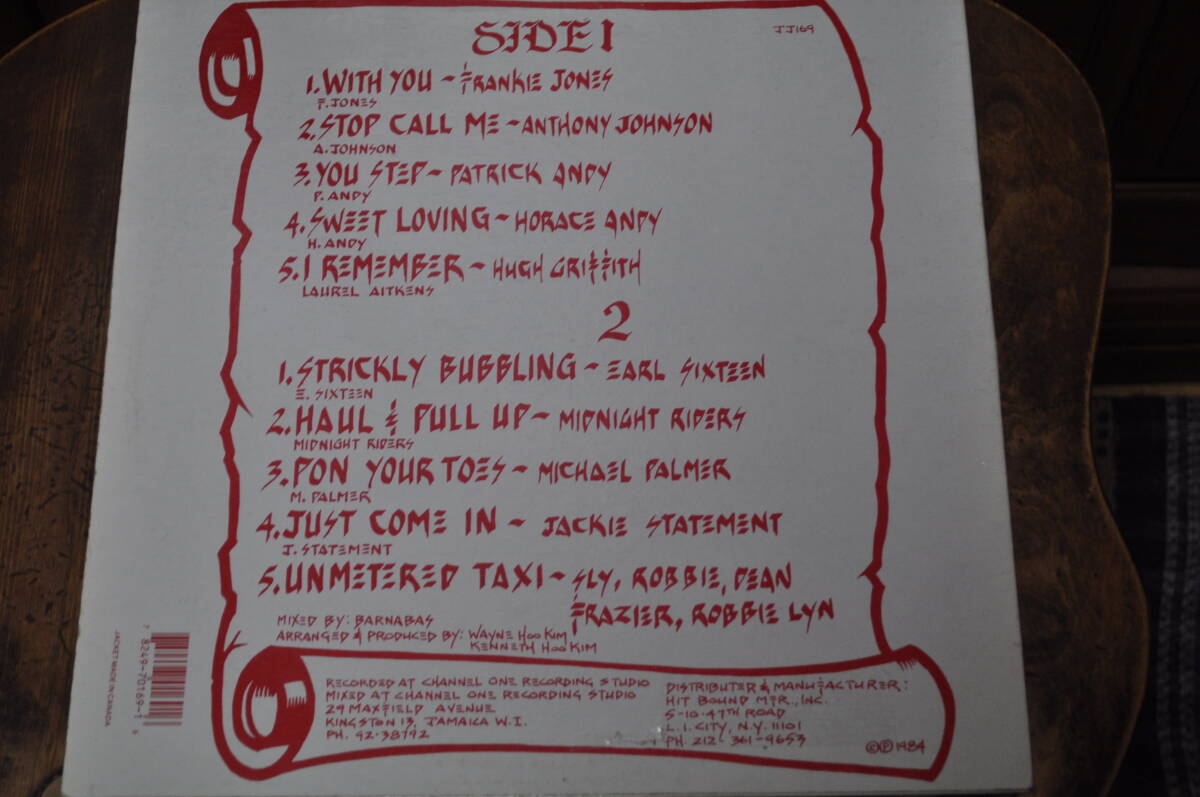 SIDE 1
JJ169
1. WITH YOU ~ FRANKIE JONES
F. JONES
2. STOP CALL ME ~ ANTHONY JOHNSON
A. JOHNSON
3. YOU STEP ~ PATRICK ANDY
P. ANDY
4. SWEET LOVING ~ HORACE ANDY
H. ANDY
5. I REMEMBER ~ HUGH GRIFFITH
LAUREL AITKENS
2
1. STRICKLY BUBBLING ~ EARL SIXTEEN
E. SIXTEEN
2. HAUL & PULL UP ~ MIDNIGHT RIDERS
MIDNIGHT RIDERS
3. PON YOUR TOES ~ MICHAEL PALMER
M. PALMER
4. JUST COME IN ~ JACKIE STATEMENT
J. STATEMENT
5. UNMETERED TAXI ~ SLY, ROBBIE, DEAN
FRAZIER, ROBBIE LYN
MIXED BY: BARNABAS
ARRANGED & PRODUCED BY: WAYNE HOO KIM
KENNETH HOO KIM
RECORDED AT CHANNEL ONE RECORDING STUDIO
MIXED AT CHANNEL ONE RECORDING STUDIO
29 MAXFIELD AVENUE
KINGSTON 13, JAMAICA W.I.
PH. 92-38792
DISTRIBUTER & MANUFACTURER:
HIT BOUND MFR., INC.
5-10-47TH ROAD
L.I. CITY, N.Y. 11101
PH. 212-361-9653
©℗1984
JACKET MADE IN CANADA
7 8249-70169-1 6